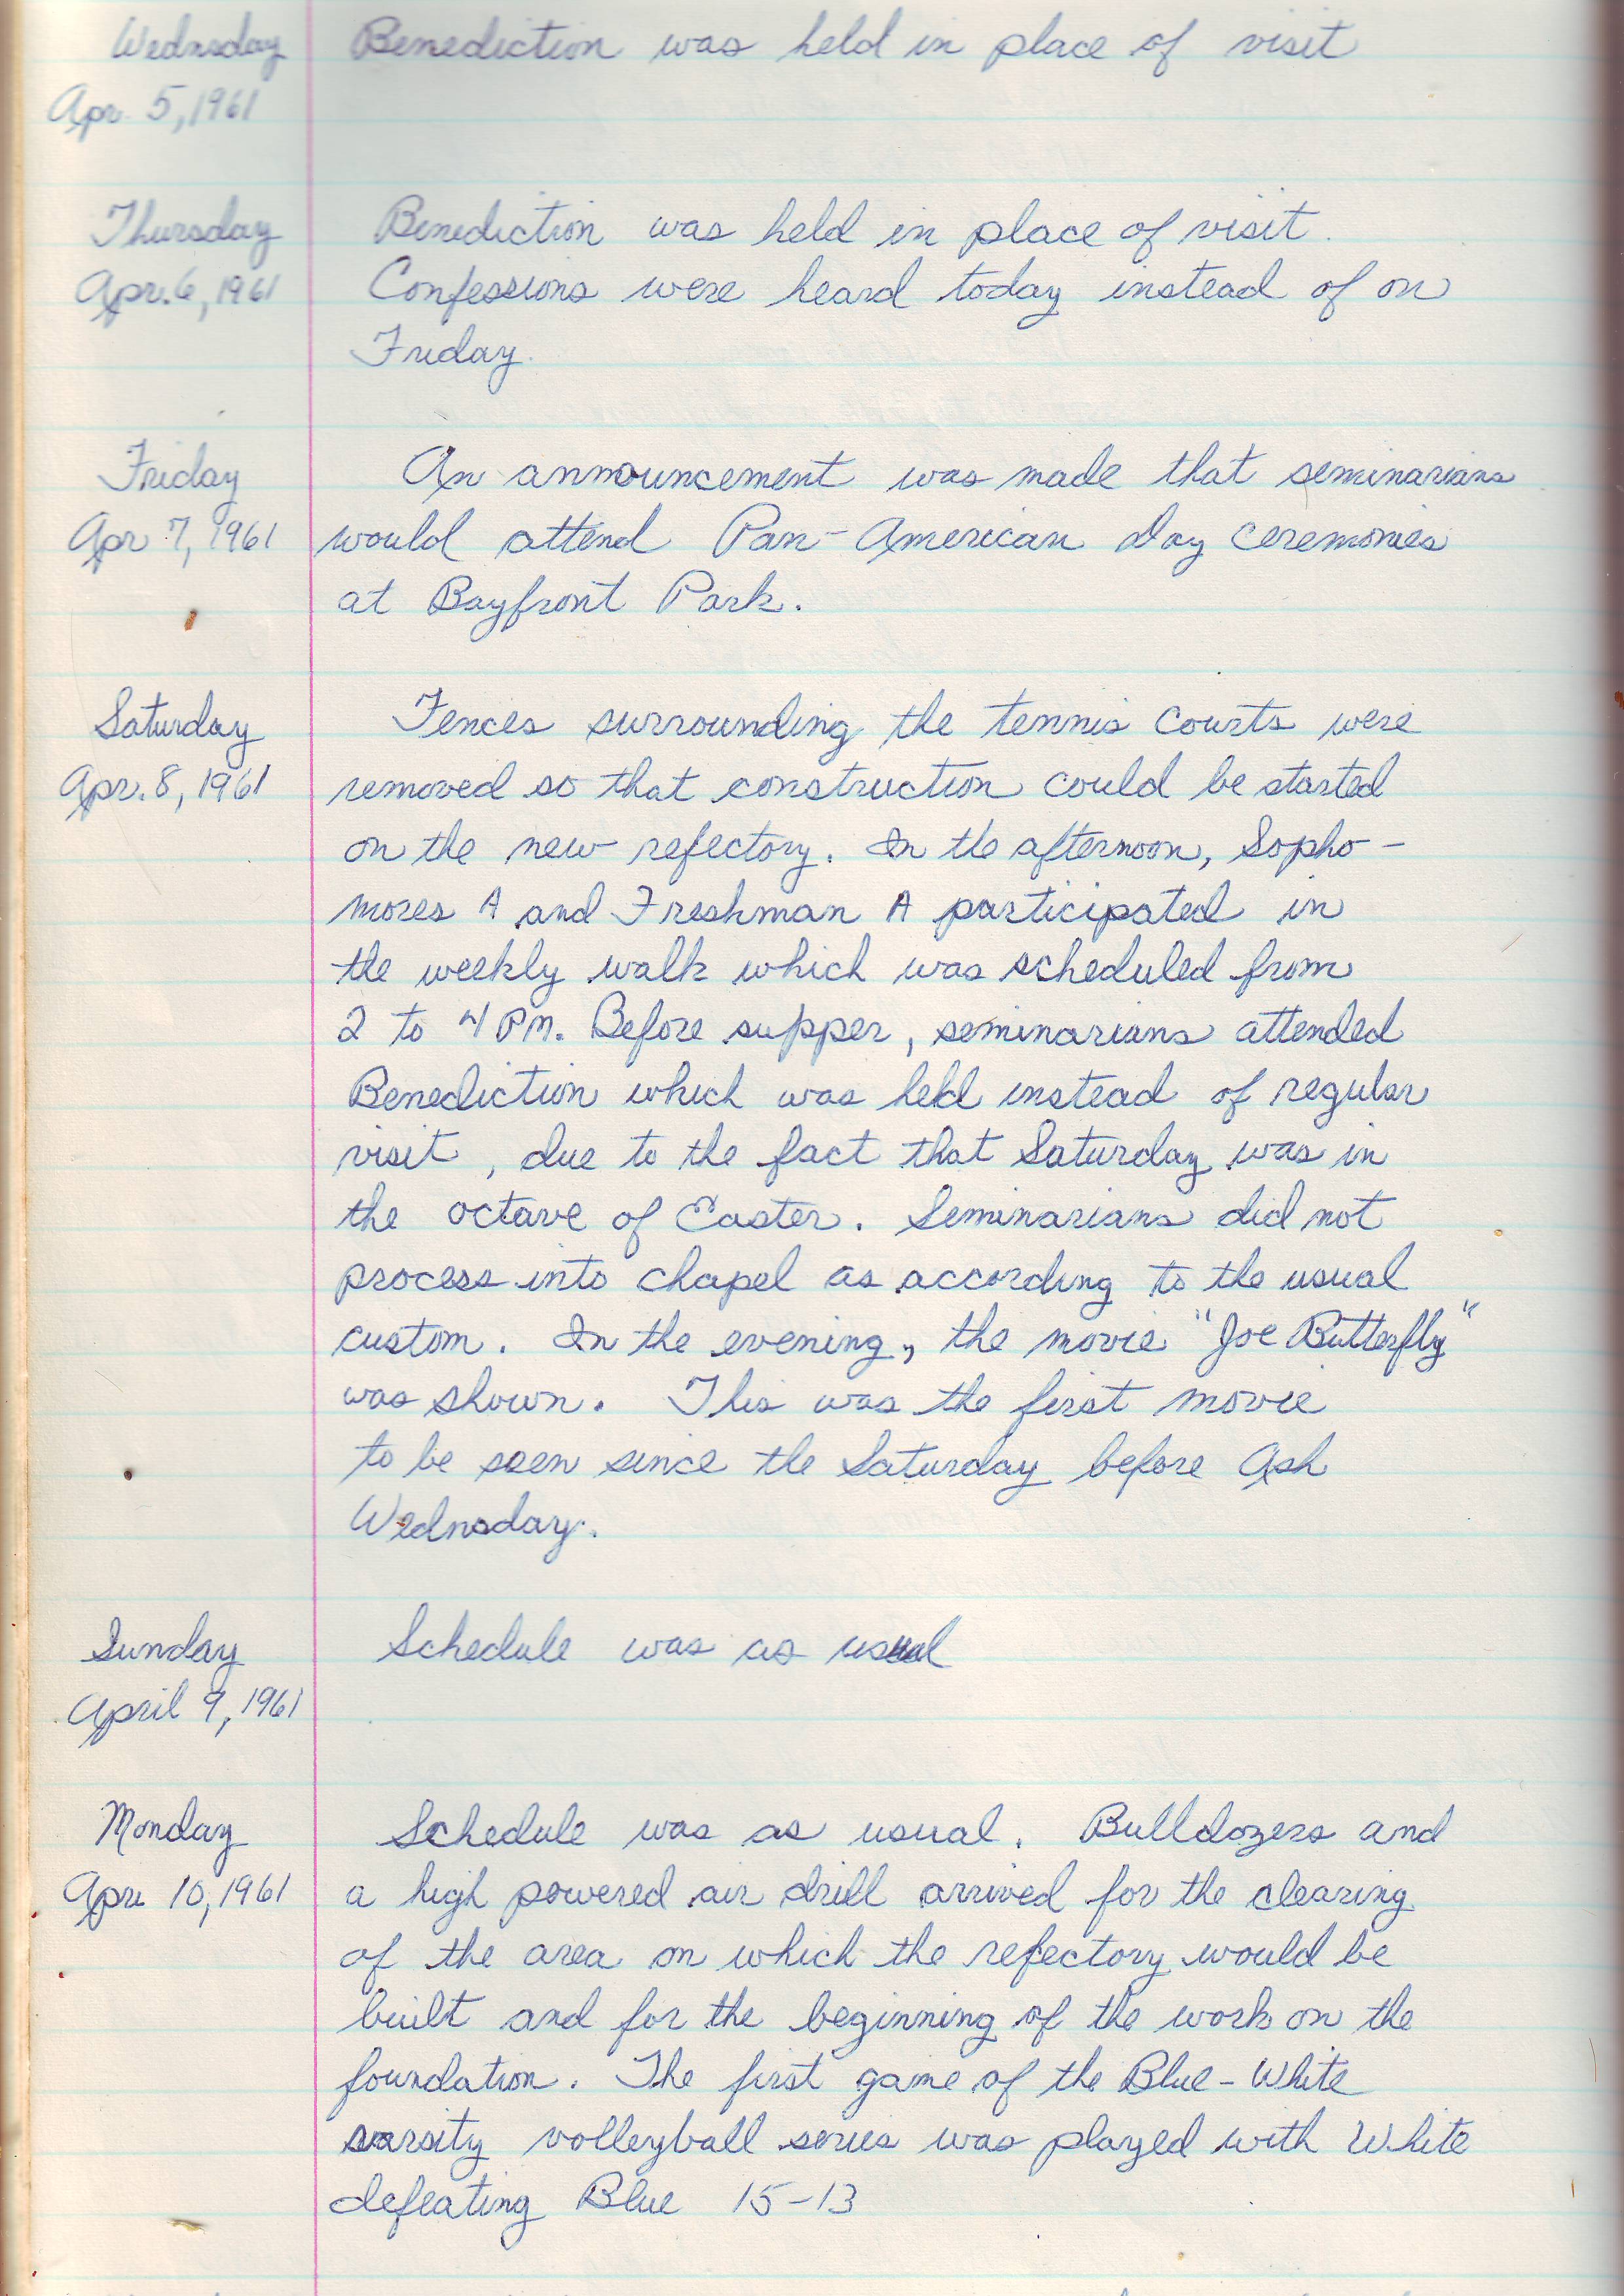 Wednsday Benediction was held in place of visit
Apr. 5, 1961
Thursday Benediction was held in place of visit.
Apr. 6, 1961 Confessions were heard today instead of on
Friday.
Friday An announcement was made that seminarians
Apr 7, 1961 would attend Pan-American Day ceremonies
at Bayfront Park.
Saturday Fences surrounding the tennis courts were
Apr. 8, 1961 removed so that construction could be started
on the new refectory. In the afternoon, Sopho-
mores A and Freshman A participated in
the weekly walk which was scheduled from
2 to 4 PM. Before supper, seminarians attended
Benediction which was held instead of regular
visit, due to the fact that Saturday was in
the octave of Easter. Seminarians did not
process into chapel as according to the usual
custom. In the evening, the movie "Joe Butterfly"
was shown. This was the first movie
to be seen since the Saturday before Ash
Wednsday.
Sunday Schedule was as usual
April 9, 1961
Monday Schedule was as usual. Bulldozers and
Apr. 10, 1961 a high powered air drill arrived for the clearing
of the area on which the refectory would be
built and for the beginning of the work on the
foundation. The first game of the Blue-White
varsity volleyball series was played with White
defeating Blue 15-13